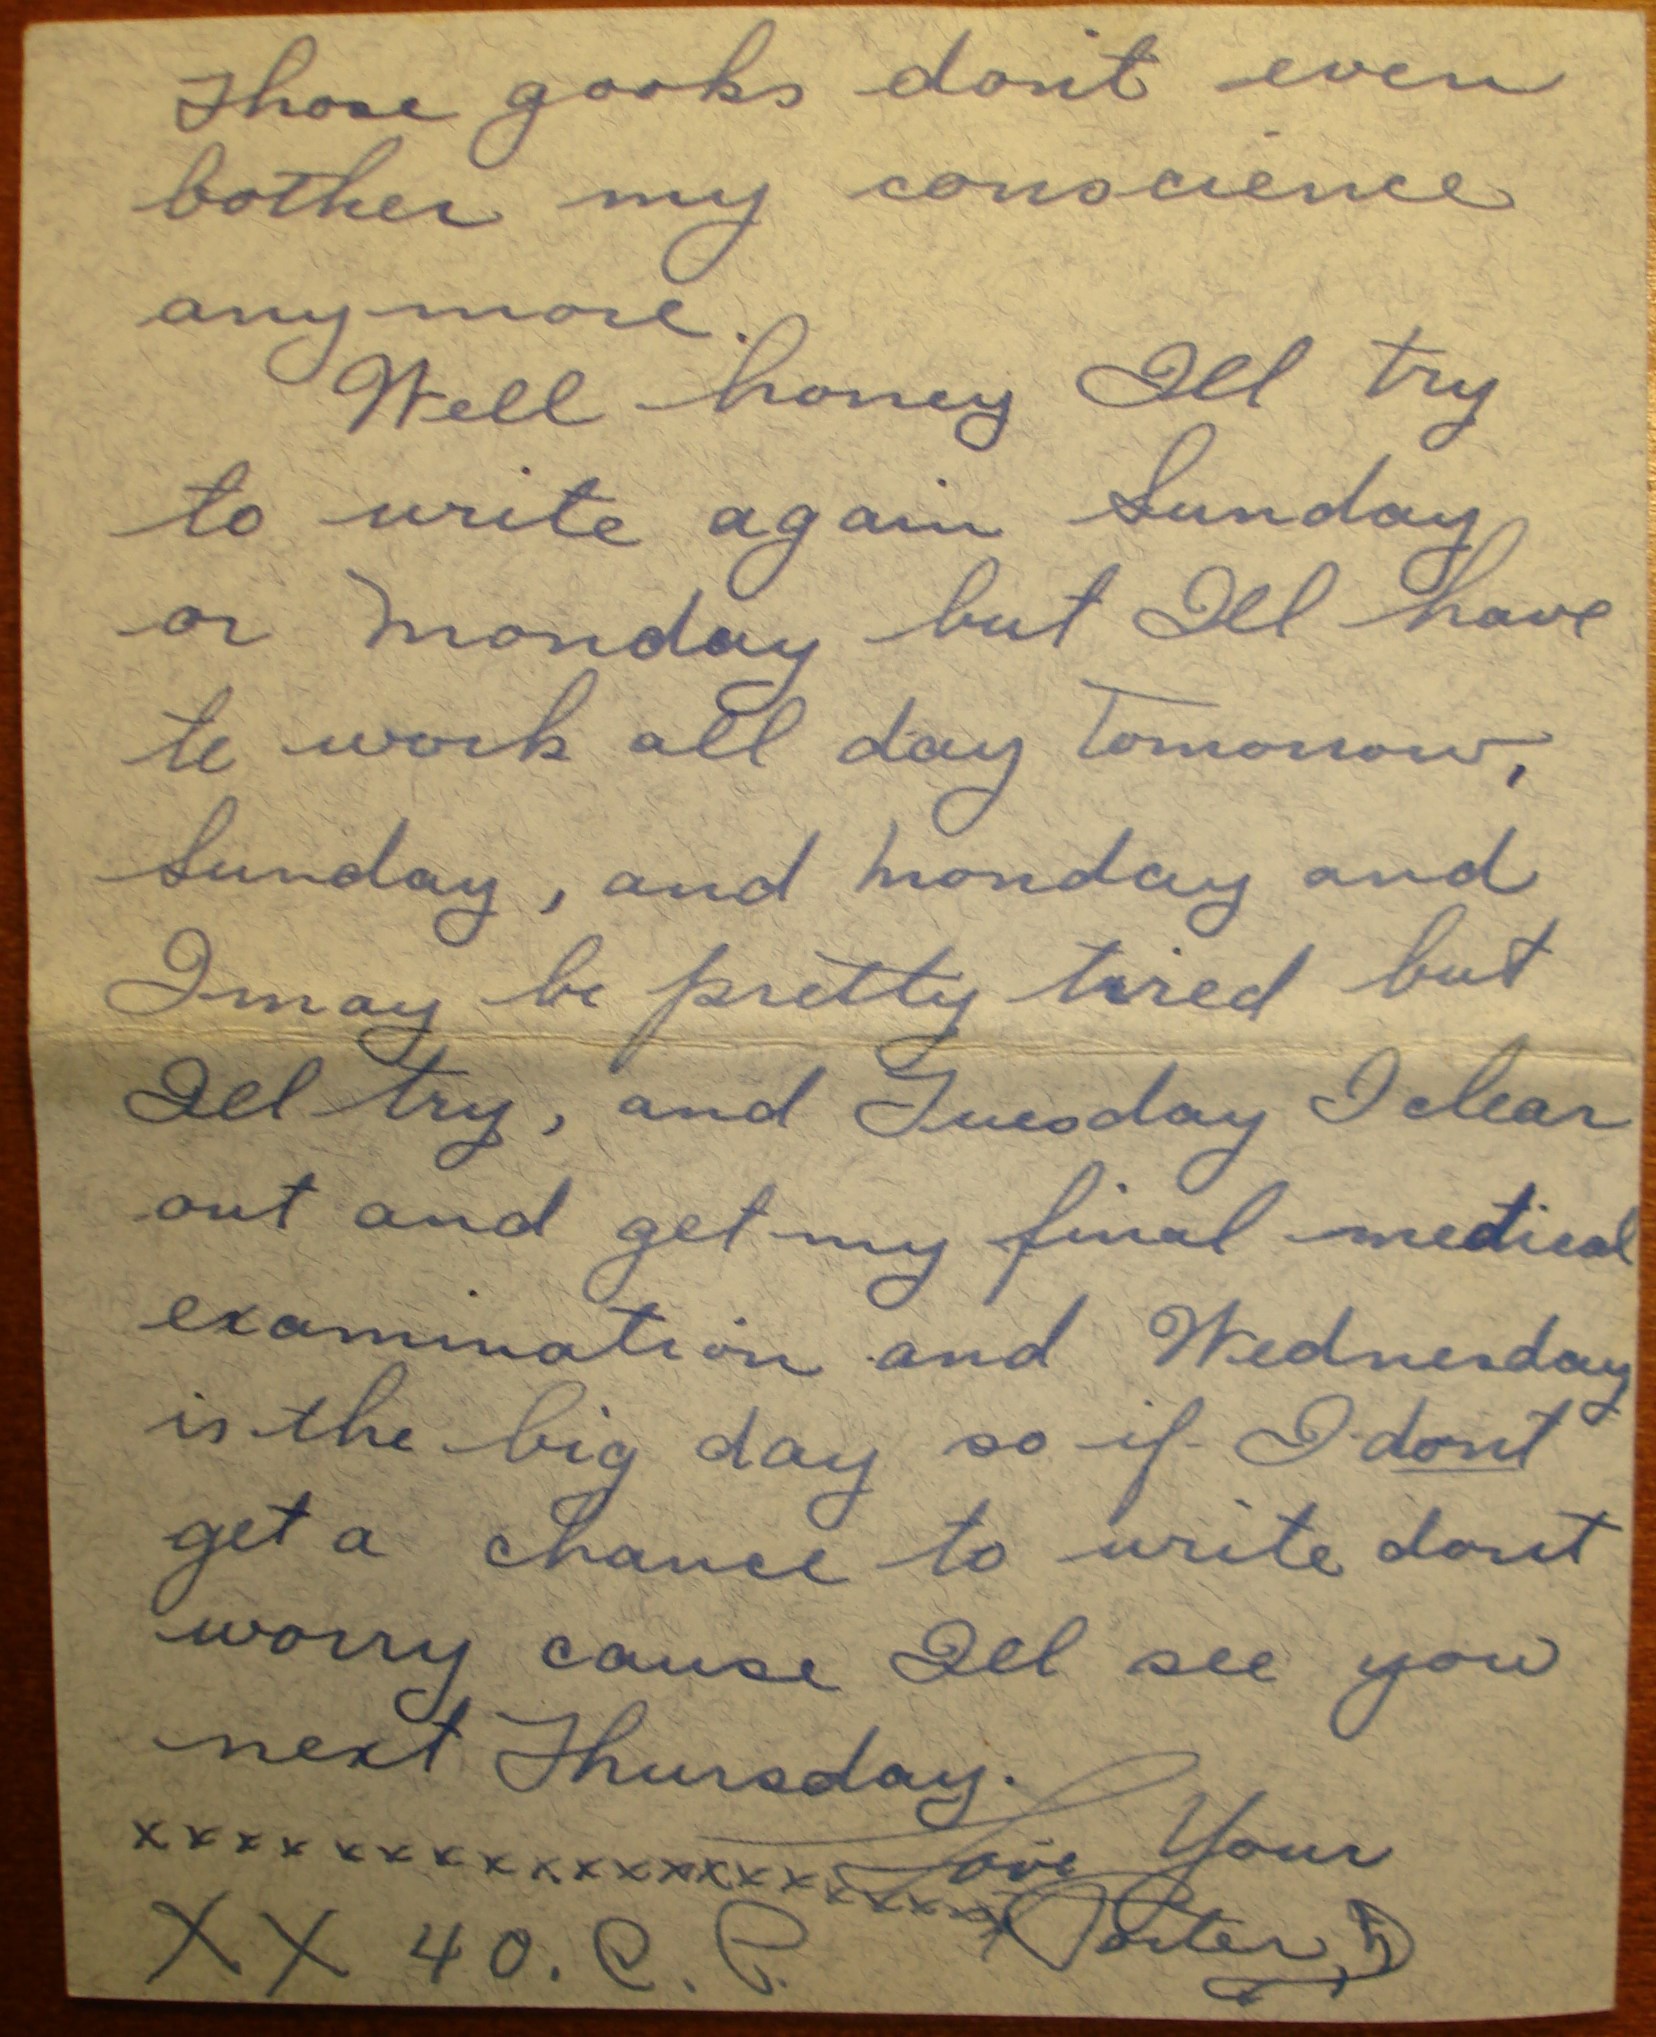 Those gooks don't even
bother my conscience
anymore.
Well honey Ill try
to write again Sunday
or Monday but Ill have
to work all day tomorrow,
Sunday, and Monday and
I may be pretty tired but
Ill try, and Tuesday I clear
out and get my final medical
examination and Wednesday
is the big day so if I dont
get a chance to write dont
worry cause Ill see you
next Thursday.
Love Your
x x x x x x x x x x x x x x x x x x x x x
Porter
XX 40. C. P.